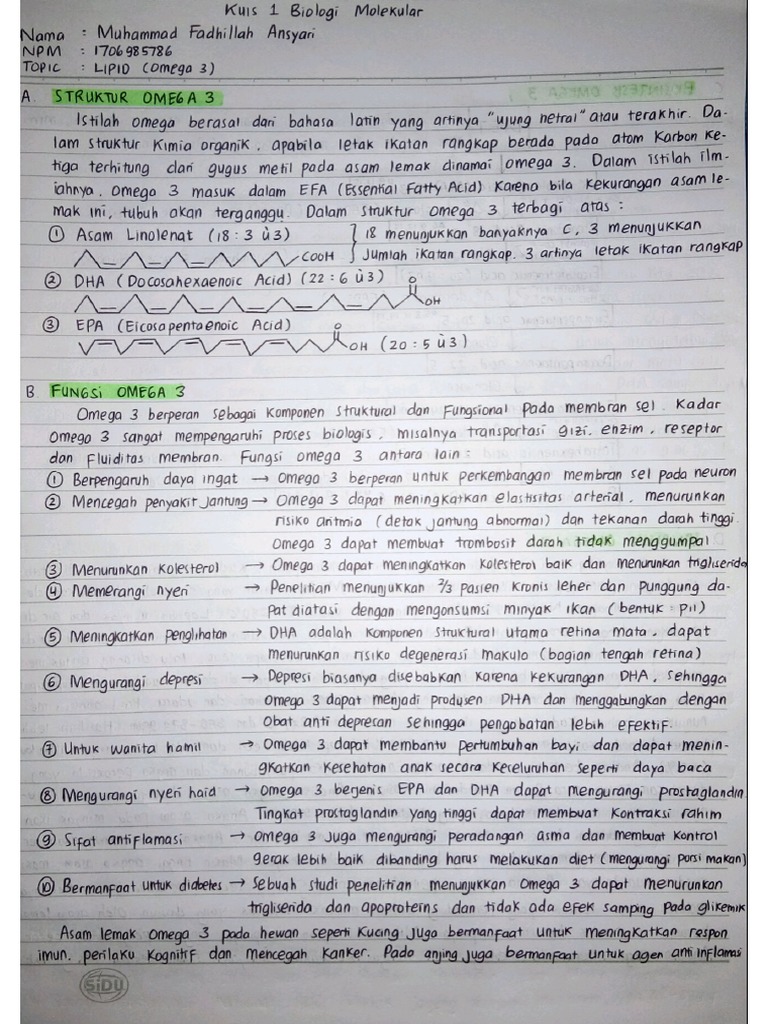 Kuis 1 Biologi Molekular
Nama : Muhammad Fadhillah Ansyari
NPM : 1706985786
TOPIC : LIPID (Omega 3)
A. STRUKTUR OMEGA 3
Istilah omega berasal dari bahasa latin yang artinya "ujung netral" atau terakhir. Da-
lam struktur kimia organik, apabila letak ikatan rangkap berada pada atom karbon ke-
tiga terhitung dari gugus metil pada asam lemak dinamai omega 3. Dalam istilah ilm-
iahnya, omega 3 masuk dalam EFA (Essential Fatty Acid) karena bila kekurangan asam le-
mak ini, tubuh akan terganggu. Dalam struktur omega 3 terbagi atas :
① Asam Linolenat (18 : 3 ù3) } 18 menunjukkan banyaknya C, 3 menunjukkan
COOH Jumlah ikatan rangkap. 3 artinya letak ikatan rangkap
② DHA (Docosahexaenoic Acid) (22 : 6 ù3)
O OH
③ EPA (Eicosapentaenoic Acid)
O OH (20 : 5 ù3)
B FUNGSI OMEGA 3
Omega 3 berperan sebagai komponen struktural dan fungsional pada membran sel. Kadar
Omega 3 sangat mempengaruhi proses biologis, misalnya transportasi gizi, enzim, reseptor
dan Fluiditas membran. Fungsi omega 3 antara lain :
① Berpengaruh daya ingat → Omega 3 berperan untuk perkembangan membran sel pada neuron
② Mencegah penyakit jantung → Omega 3 dapat meningkatkan elastisitas arterial, menurunkan
risiko aritmia (detak jantung abnormal) dan tekanan darah tinggi.
Omega 3 dapat membuat trombosit darah tidak menggumpal
③ Menurunkan kolesterol → Omega 3 dapat meningkatkan kolesterol baik dan menurunkan trigliserida
④ Memerangi nyeri → Penelitian menunjukkan 2/3 pasien kronis leher dan punggung da-
pat diatasi dengan mengonsumsi minyak ikan (bentuk : pil)
⑤ Meningkatkan penglihatan → DHA adalah komponen struktural utama retina mata, dapat
menurunkan risiko degenerasi makulo (bagian tengah retina)
⑥ Mengurangi depresi → Depresi biasanya disebabkan karena kekurangan DHA, sehingga
Omega 3 dapat menjadi produsen DHA dan menggabungkan dengan
Obat anti depresan sehingga pengobatan lebih efektif.
⑦ Untuk wanita hamil → Omega 3 dapat membantu pertumbuhan bayi dan dapat menin-
gkatkan kesehatan anak secara keceluruhan seperti daya baca
⑧ Mengurangi nyeri haid → Omega 3 berjenis EPA dan DHA dapat mengurangi prostaglandin
Tingkat prostaglandin yang tinggi dapat membuat kontraksi rahim
⑨ Sifat antiflamasi → Omega 3 juga mengurangi peradangan asma dan membuat kontrol
gerak lebih baik dibanding harus melakukan diet (mengurangi porsi makan)
⑩ Bermanfaat untuk diabetes → Sebuah studi penelitian menunjukkan omega 3 dapat menurunkan
trigliserida dan apoproteins dan tidak ada efek samping pada glikemik
Asam lemak omega 3 pada hewan seperti kucing juga bermanfaat untuk meningkatkan respon
imun, perilaku kognitif dan mencegah kanker. Pada anjing juga bermanfaat untuk agen anti inflamasi
SiDU